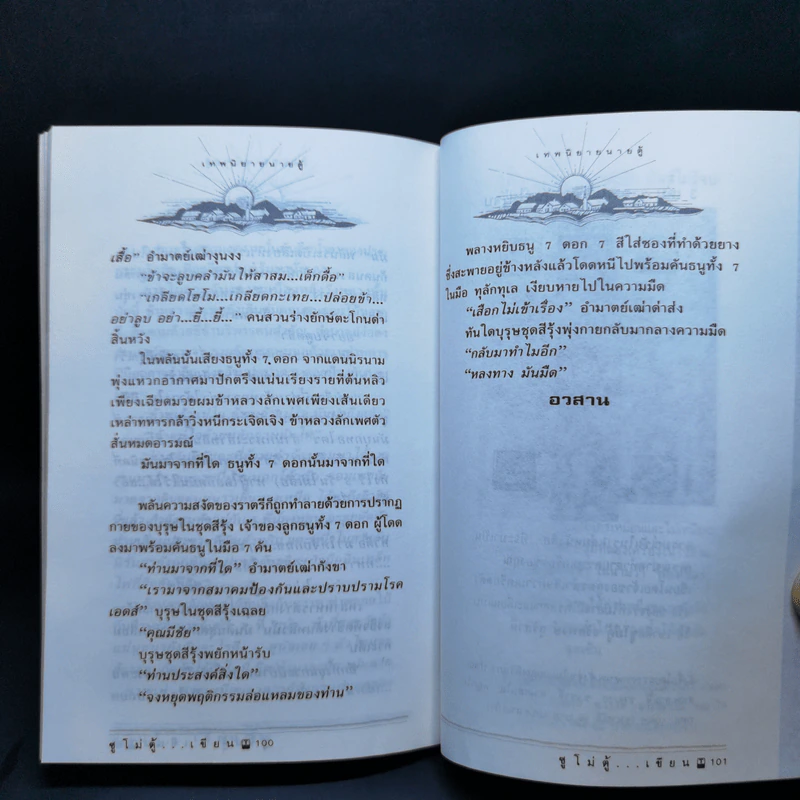 เทพนิยายนายตู้
เสื้อ” อำมาตย์เฒ่างุนงง
“ข้าจะลูบคลำมันให้สาสม...เด็กดื้อ”
“เกลียดโฮโม...เกลียดกะเทย...ปล่อยข้า...
อย่าลูบ อย่า...ยี้...ยี้...” คนสวนร่างยักษ์ตะโกนด่ำ
สิ้นหวัง
ในพลันนั้นเสียงธนูทั้ง 7 ดอก จากแดนนิรนาม
พุ่งแหวกอากาศมาปักตรึงแน่นเรียงรายที่ต้นหลิว
เพียงเฉียดมวยผมข้าหลวงลักเพศเพียงเส้นเดียว
เหล่าทหารกล้าวิ่งหนีกระเจิดเจิง ข้าหลวงลักเพศตัว
สั่นหมดอารมณ์
มันมาจากที่ใด ธนูทั้ง 7 ดอกนั้นมาจากที่ใด
พลันความสงัดของราตรีก็ถูกทำลายด้วยการปรากฏ
กายของบุรุษในชุดสีรุ้ง เจ้าของลูกธนูทั้ง 7 ดอก ผู้โดด
ลงมาพร้อมคันธนูในมือ 7 คัน
“ท่านมาจากที่ใด” อำมาตย์เฒ่ากังขา
“เรามาจากสมาคมป้องกันและปราบปรามโรค
เอดส์” บุรุษในชุดสีรุ้งเฉลย
“คุณมีชัย”
บุรุษชุดสีรุ้งพยักหน้ารับ
“ท่านประสงค์สิ่งใด”
“จงหยุดพฤติกรรมส่อแหลมของท่าน”
ซูโม่ตู้...เขียน 100
เทพนิยายนายตู้
พลางหยิบธนู 7 ดอก 7 สีใส่ซองที่ทำด้วยยาง
ซึ่งสะพายอยู่ข้างหลังแล้วโดดหนีไปพร้อมคันธนูทั้ง 7
ในมือ ทุลักทุเล เงียบหายไปในความมืด
“เสือกไม่เข้าเรื่อง” อำมาตย์เฒ่าด่าส่ง
ทันใดบุรุษชุดสีรุ้งพุ่งกายกลับมากลางความมืด
“กลับมาทำไมอีก”
“หลงทาง มันมืด”
อวสาน
ซูโม่ตู้...เขียน 101